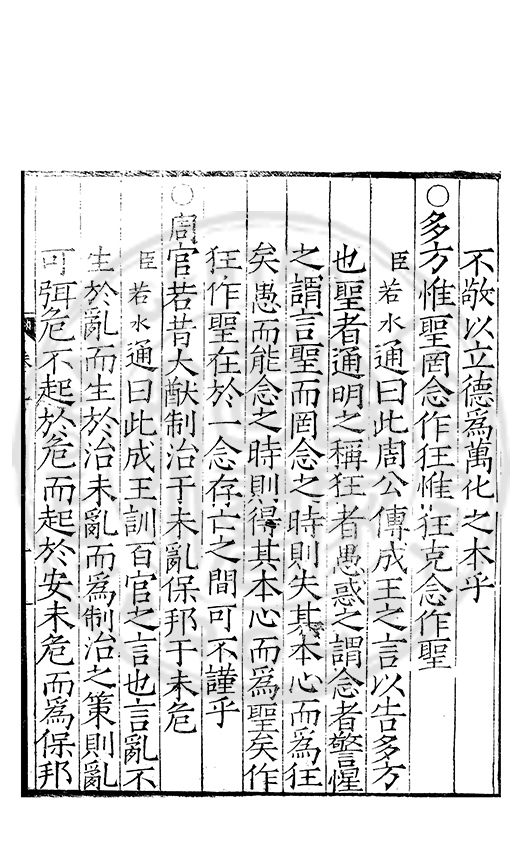 不敬以立德爲萬化之本乎
○多方惟聖罔念作狂惟狂克念作聖
臣若水通曰此周公傳成王之言以告多方
也聖者通明之稱狂者愚惑之謂念者警惺
之謂言聖而罔念之時則失其本心而爲狂
矣愚而能念之時則得其本心而爲聖矣作
狂作聖在於一念存亡之間可不謹乎
○周官若昔大猷制治于未亂保邦于未危
臣若水通曰此成王訓百官之言也言亂不
生於亂而生於治未亂而爲制治之策則亂
可弭危不起於危而起於安未危而爲保邦